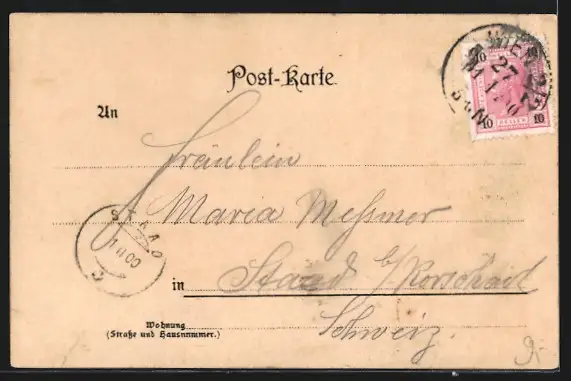 Post-Karte.
An
Fräulein
Maria Messmer
in Staad b/Rorschach
Wohnung
(Straße und Hausnummer.)
Schweiz.
WIEN
27
10 HELLER 10
STAAD
00